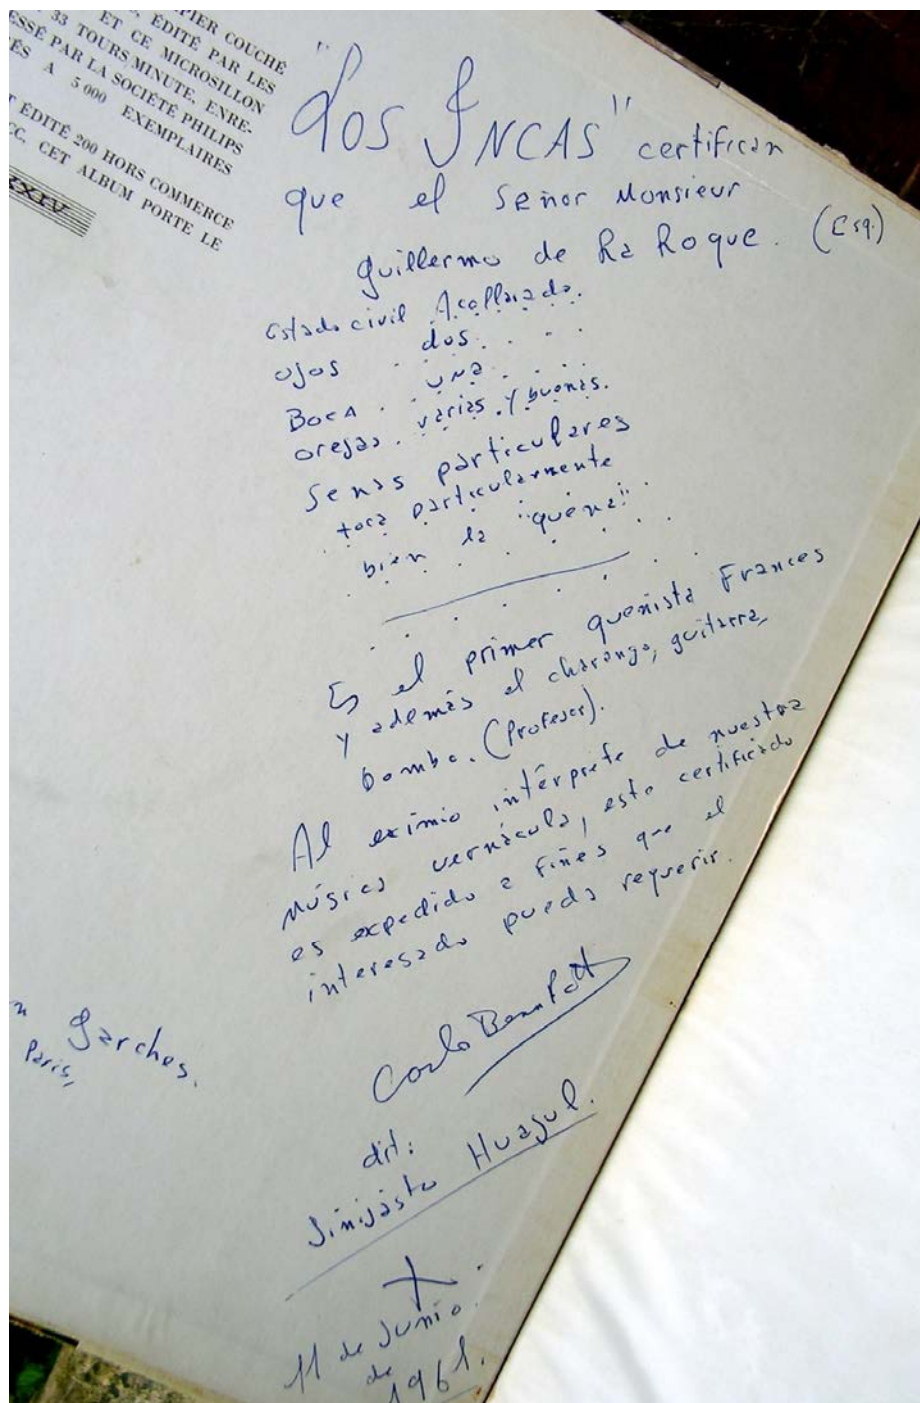 PIER COUCHÉ
, ÉDITÉ PAR LES
ET CE MICROSILLON
33 TOURS MINUTE, ENRE-
ESSÉ PAR LA SOCIÉTÉ PHILIPS
ÉS A 5 000 EXEMPLAIRES
ÉDITÉ 200 HORS COMMERCE
CC. CET ALBUM PORTE LE
XXIV
"Los INCAS" certifican
que el Señor Monsieur
Guillermo de La Roque. (Esq.)
Estado civil Acollarado.
ojos . dos. . .
Boca . una . . .
orejas . varias . y buenas.
Senas particulares
toca particularmente
bien la "quena".
Es el primer quenista Frances
y además el charango, guitarra,
bombo. (Profesor).
Al eximio intérprete de nuestra
música vernácula, este certificado
es expedido a fines que el
interesado pueda requerir.
n Garches.
Paris,
Carlos Benn Pott
dit:
Jinijasto Huazul.
X
11 de Junio.
de 1961.